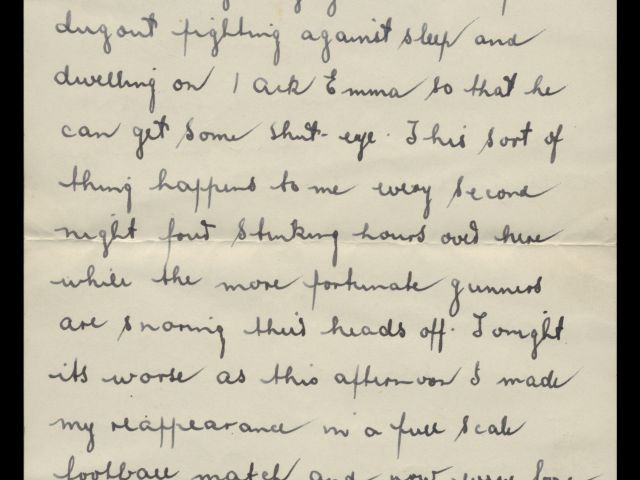 dugout fighting against sleep and
dwelling on 1 Ack Emma so that he
can get some shut-eye. This sort of
thing happens to me every second
night four stinking hours over here
while the more fortunate gunners
are snoring their heads off. Tonight
its worse as this afternoon I made
my reappearance in a full scale
football match and now every